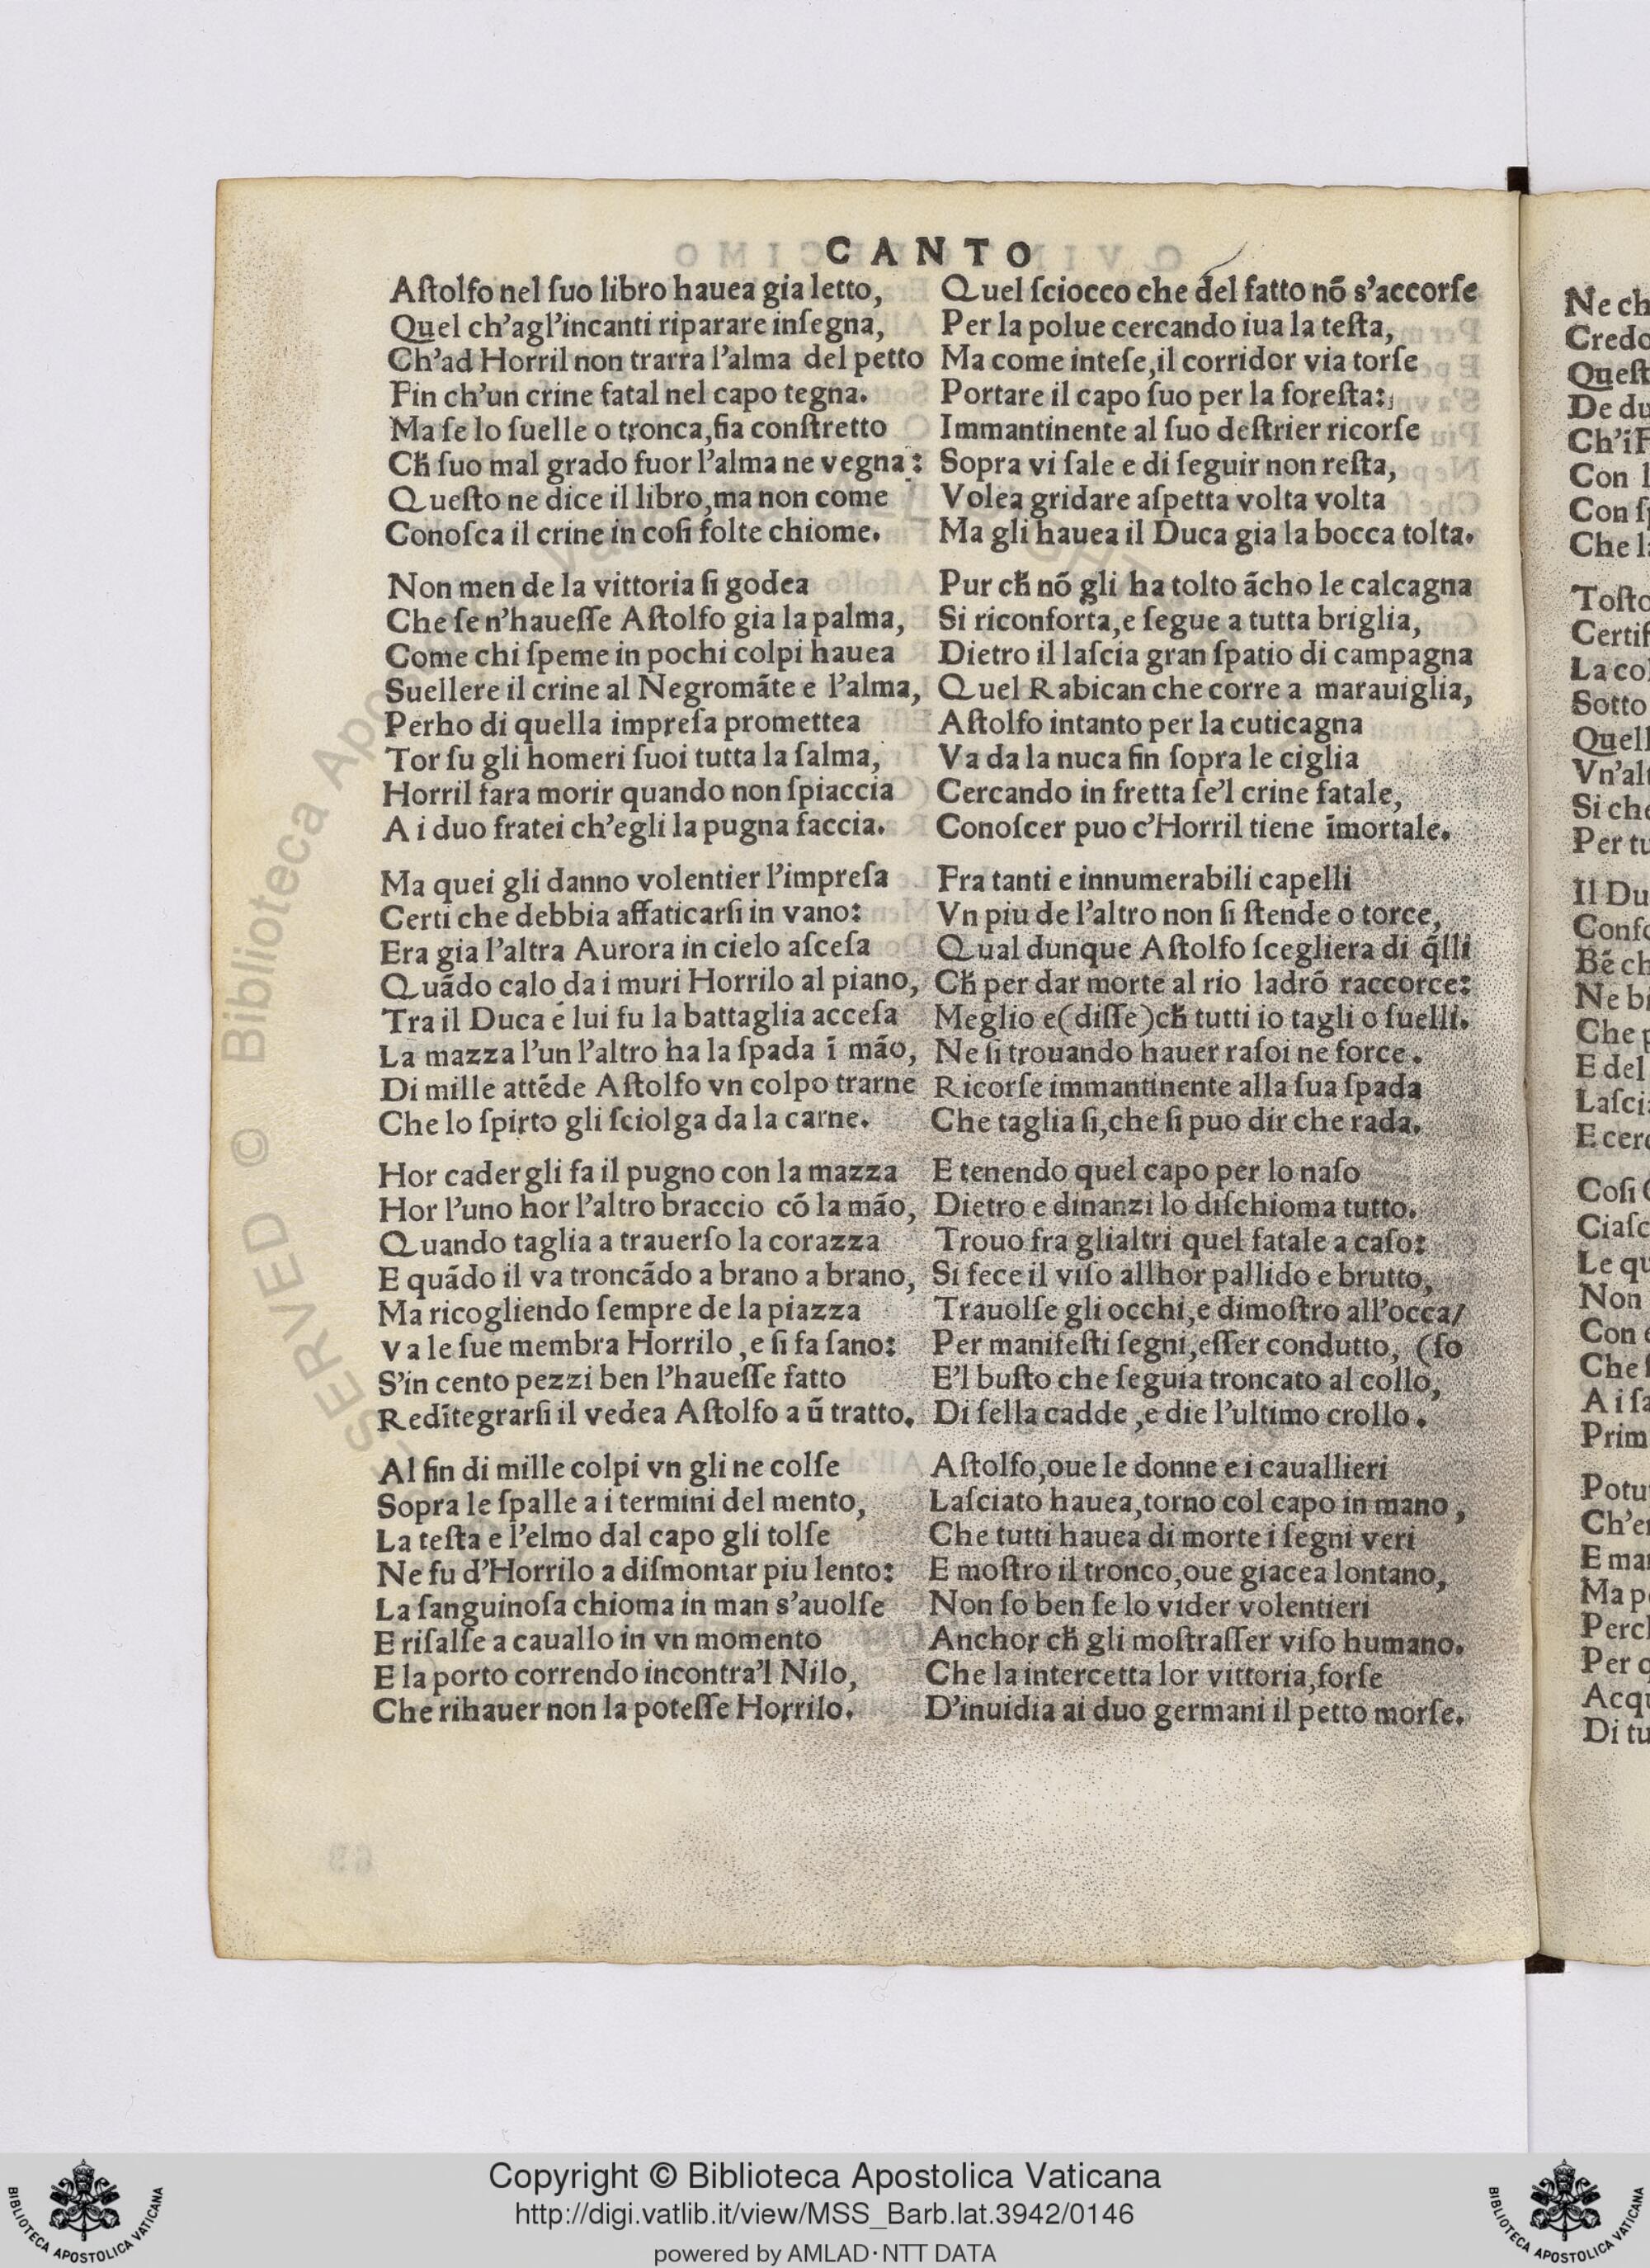 CANTO
Aſtolfo nel ſuo libro hauea gia letto,
Quel ch'agl'incanti riparare inſegna,
Ch'ad Horril non trarra l'alma del petto
Fin ch'un crine fatal nel capo tegna.
Ma ſe lo ſuelle o tronca,fia conſtretto
Cħ ſuo mal grado fuor l'alma ne vegna:
Queſto ne dice il libro,ma non come
Conoſca il crine in coſi folte chiome.
Non men de la vittoria ſi godea
Che ſe n'haueſſe Aſtolfo gia la palma,
Come chi ſpeme in pochi colpi hauea
Suellere il crine al Negromāte e l'alma,
Perho di quella impreſa promettea
Tor ſu gli homeri ſuoi tutta la ſalma,
Horril fara morir quando non ſpiaccia
A i duo fratei ch'egli la pugna faccia.
Ma quei gli danno volentier l'impreſa
Certi che debbia affaticarſi in vano:
Era gia l'altra Aurora in cielo aſceſa
Quādo calo da i muri Horrilo al piano,
Tra il Duca e lui fu la battaglia acceſa
La mazza l'un l'altro ha la ſpada ī māo,
Di mille attēde Aſtolfo vn colpo trarne
Che lo ſpirto gli ſciolga da la carne.
Hor cader gli fa il pugno con la mazza
Hor l'uno hor l'altro braccio cō la māo,
Quando taglia a trauerſo la corazza
E quādo il va troncādo a brano a brano,
Ma ricogliendo ſempre de la piazza
Va le ſue membra Horrilo ,e ſi fa ſano:
S'in cento pezzi ben l'haueſſe fatto
Redītegrarſi il vedea Aſtolfo a ū tratto.
Al fin di mille colpi vn gli ne colſe
Sopra le ſpalle a i termini del mento,
La teſta e l'elmo dal capo gli tolſe
Ne fu d'Horrilo a diſmontar piu lento:
La ſanguinoſa chioma in man s'auolſe
E riſalſe a cauallo in vn momento
E la porto correndo incontra'l Nilo,
Che rihauer non la poteſſe Horrilo.
Quel ſciocco che del fatto nō s'accorſe
Per la polue cercando iua la teſta,
Ma come inteſe,il corridor via torſe
Portare il capo ſuo per la foreſta:
Immantinente al ſuo deſtrier ricorſe
Sopra vi ſale e di ſeguir non reſta,
Volea gridare aſpetta volta volta
Ma gli hauea il Duca gia la bocca tolta.
Pur cħ nō gli ha tolto ācho le calcagna
Si riconforta,e ſegue a tutta briglia,
Dietro il laſcia gran ſpatio di campagna
Quel Rabican che corre a marauiglia,
Aſtolfo intanto per la cuticagna
Va da la nuca fin ſopra le ciglia
Cercando in fretta ſe'l crine fatale,
Conoſcer puo c'Horril tiene īmortale.
Fra tanti e innumerabili capelli
Vn piu de l'altro non ſi ſtende o torce,
Qual dunque Aſtolfo ſcegliera di q̄lli
Cħ per dar morte al rio ladrō raccorce:
Meglio e(diſſe)cħ tutti io tagli o ſuelli.
Ne ſi trouando hauer raſoi ne force.
Ricorſe immantinente alla ſua ſpada
Che taglia ſi,che ſi puo dir che rada.
E tenendo quel capo per lo naſo
Dietro e dinanzi lo diſchioma tutto.
Trouo fra glialtri quel fatale a caſo:
Si fece il viſo allhor pallido e brutto,
Trauolſe gli occhi,e dimoſtro all'occa/
Per manifeſti ſegni,eſſer condutto, (ſo
E'l buſto che ſeguia troncato al collo,
Di ſella cadde ,e die l'ultimo crollo.
Aſtolfo,oue le donne e i cauallieri
Laſciato hauea,torno col capo in mano,
Che tutti hauea di morte i ſegni veri
E moſtro il tronco,oue giacea lontano,
Non ſo ben ſe lo vider volentieri
Anchor cħ gli moſtraſſer viſo humano.
Che la intercetta lor vittoria,forſe
D'inuidia ai duo germani il petto morſe.
Ne ch
Credo
Queſt
De du
Ch'i F
Con l
Con ſp
Che l
Toſto
Certif
La col
Sotto
Quell
Vn'alt
Si che
Per tu
Il Du
Conſo
Bē ch
Ne bi
Che p
E del
Laſcia
E cerc
Coſi
Ciaſc
Le qu
Non
Con
Che
A i ſa
Prim
Potu
Ch'e
E ma
Ma p
Perch
Per q
Acqu
Di tu
SERVED © Biblioteca Apo
Copyright © Biblioteca Apostolica Vaticana
http://digi.vatlib.it/view/MSS_Barb.lat.3942/0146
powered by AMLAD·NTT DATA
BIBLIOTECA APOSTOLICA VATICANA
BIBLIOTECA APOSTOLICA VATICANA